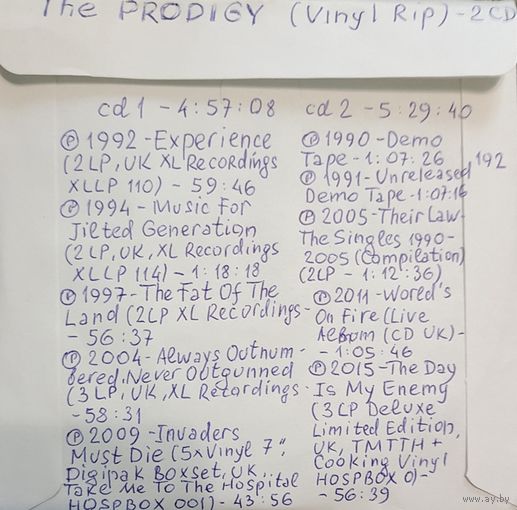 The PRODIGY (Vinyl Rip) - 2CD
cd 1 - 4:57:08
Ⓟ 1992 - Experience
(2LP, UK XL Recordings
XLLP 110) - 59:46
Ⓟ 1994 - Music For
Jilted Generation
(2LP, UK, XL Recordings
XLLP 114) - 1:18:18
Ⓟ 1997 - The Fat Of The
Land (2LP XL Recordings -
- 56:37
Ⓟ 2004 - Always Outnum -
bered, Never Outgunned
(3LP, UK, XL Recordings -
- 58:31
Ⓟ 2009 - Invaders
Must Die (5xVinyl 7",
Digipak Boxset, UK,
Take Me To The Hospital
HOSPBOX 001) - 43:56
cd 2 - 5:29:40
Ⓟ 1990 - Demo
Tape - 1:07:26
192
Ⓟ 1991 - Unreleased
Demo Tape - 1:07:16
Ⓟ 2005 - Their Law -
The Singles 1990 -
2005 (Compilation)
(2LP - 1:12:36)
Ⓟ 2011 - Wored's
On Fire (Live
Album (CD UK) -
- 1:05:46
Ⓟ 2015 - The Day
Is My Enemy
(3LP Deluxe
Limited Edition,
UK, TMTTH +
Cooking Vinyl
HOSPBOX 0) -
- 56:39
www.ay.by